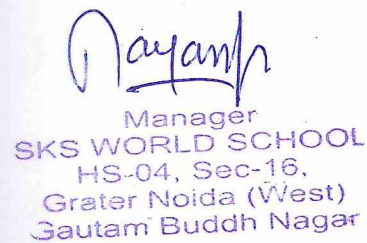 Manager
SKS WORLD SCHOOL
HS-04, Sec-16,
Grater Noida (West)
Gautam Buddh Nagar